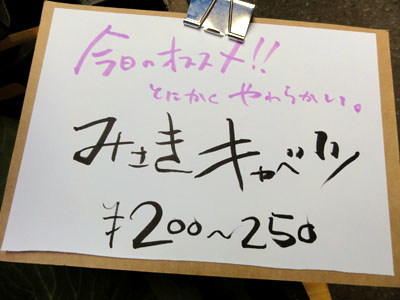 今日のオススメ!!
とにかく やわらかい。
みさき キャベツ
¥200〜250